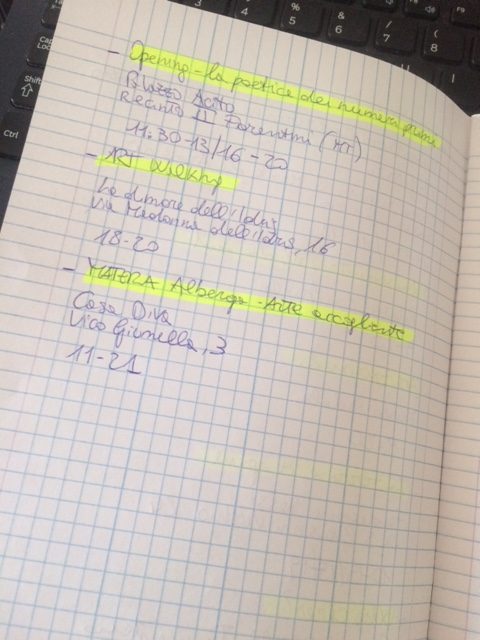 - Opening - la poetica dei numeri primi
Palazzo Acito
Recinto II Fiorentini (MT)
11:30-13/16-20
- ART Walking
Le dimore dell'Idris
via Madonna dell'Idris, 16
18-20
- MATERA Alberga - Arte accogliente
Casa Diva
Vico Giumella, 3
11-21
Caps
Lock
Shift
Ctrl
4
%
5
&
6
/
7
(
8